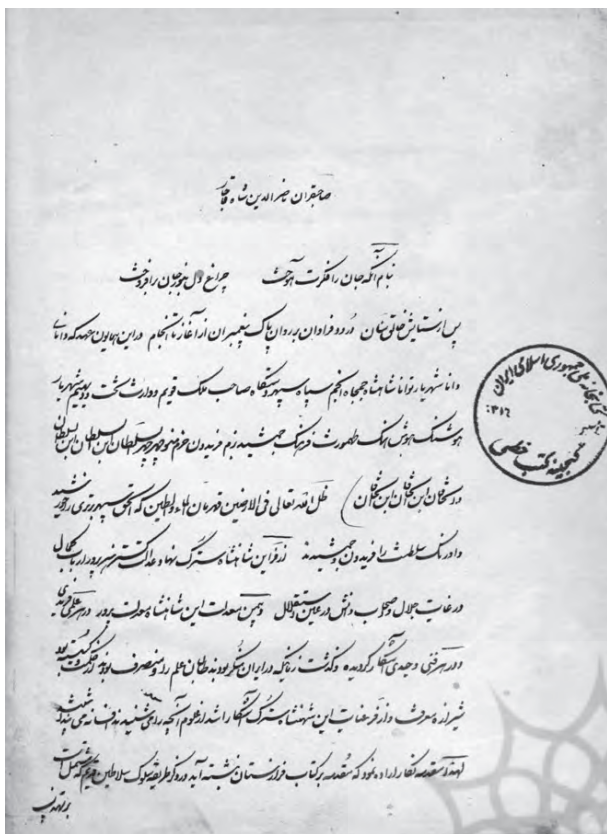 صاحبقران ناصرالدین شاه قاجار
بنام آنکه جان را فکرت آموخت چراغ دل بنور جان برافروخت
پس از ستایش خالق درود فراوان بر روان پاک پیغمبران از آغاز تا انجام در این همایون عهد که
دانا شهریار توانا شاهنشاه جمجاه انجم سپاه سپهر دستگاه صاحب ملک قویم ووارث تخت و دیهیم شهریار
هوشنگ هوش طهمورث فرهنگ جمشید رزم فریدون منوچهر چهر السلطان ابن السلطان ابن السلطان
و الخاقان ابن الخاقان ابن الخاقان ظل الله تعالی فی الارضین قهرمان الماء والطین که سپهر برتری را خورشید
و اورنگ سلطنت را فریدون و جمشیدند از فر این شاهنشاه سترگ نهاد هنرپرور ارباب کمال
در غایت جلال و اصحاب دانش در عین استقلال و یمن معدلت این شاهنشاه معدلت پرور در هر علمی فریدی
و در هر فنی وحیدی آشکار گردیده و گذشت زمانیکه در ایران بودند طالبان علم را و بود
شیرازه معرفت و از فر عنایات این شهنشاه سترگ آشکار شد از علوم آنچه را می شنیدند افسانه می
لهذا مقدمه نگار اراده نمود که مقدمه بر کتاب نبشته آید در ذکر طریقه سلوک سلاطین که مشتمل است
بر تهذیب
کتابخانه ملی جمهوری اسلامی ایران
گنجینه کتب خطی